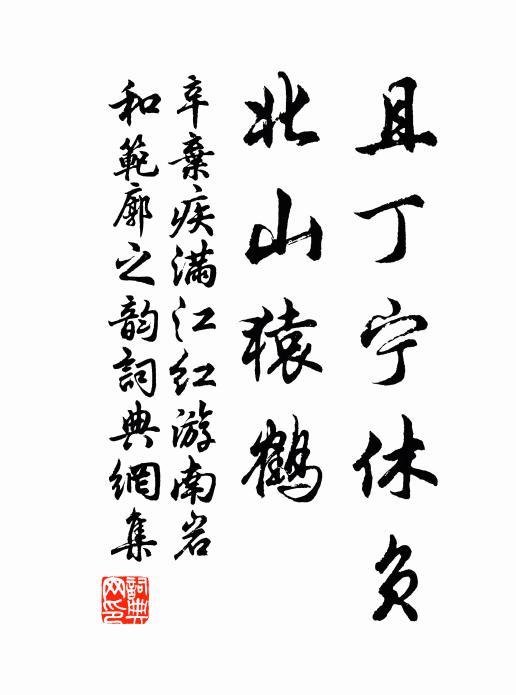 且丁宁休负
北山猿鹤
辛棄疾满江红游南岩
和範廓之韵詞典網集
詞典网印